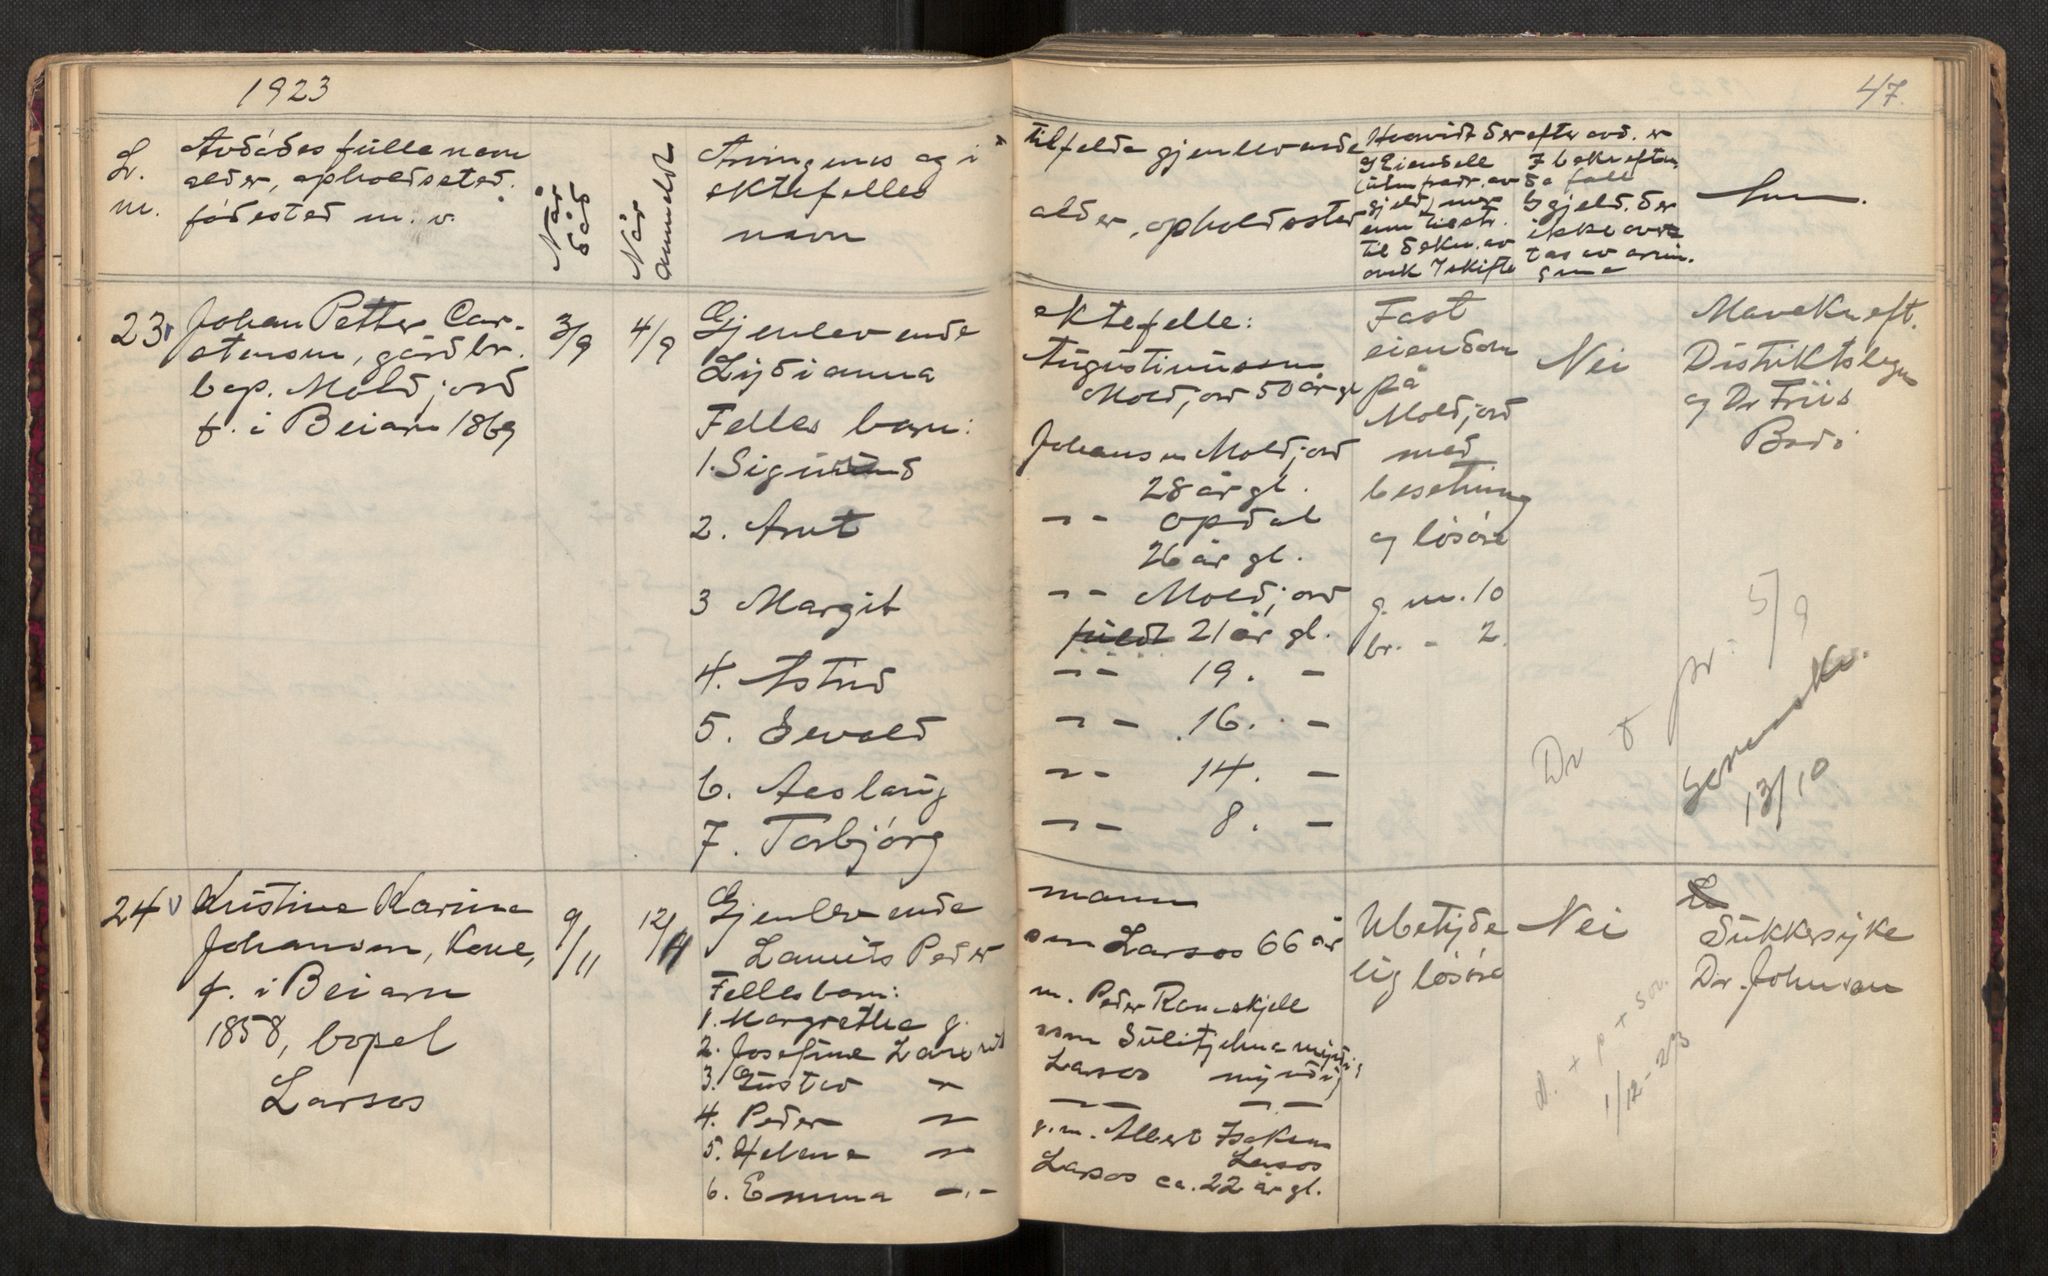 1923
47.
L. nr.
Avdødes fulle navn
alder, opholdssted.
fødested m. v.
Når død
Når anmeldt
Arvingenes og i
ektefelles
navn
tilfelde gjenlevende
alder, opholdssted
Hvorvidt der efter avd. er
g gjeld. der
ikke over
tas av arvin.
gene
Anm.
23
Johan Petter Car-
stensen, gårdbr.
bop. Moldjord
f. i Beiarn 1869
3/9
4/9
Gjenlevende
Lydianna
Felles barn:
1. Sigmund
2. Arnt
3 Margit
4. Astrid
5. Sevald
6. Aaslaug
7. Torbjørg
ektefelle:
Augustinussen
Moldjord 50 år gl
Johansen Moldjord
28 år gl.
-"- Opdal
26 år gl.
-"- Moldjord
21 år gl.
-"- 19. -
-"- 16. -
-"- 14. -
-"- 8. -
Fast
eiendom
på
Moldjord
med
besetning
og løsøre
g. nr. 10
br. - 2
Nei
Mavekreft.
Distriktslegen
og Dr Friis
Bodø
Dr + pr. 5/9
13/10
24
Kristine Karine
Johansen, Kone,
f. i Beiarn
1858, bopel
Larsos
9/11
12/11
Gjenlevende
Laurits Peder
Felles barn:
1. Margrethe g.
2. Josefine Laurits
3. Gustav -"-
4. Peder -"-
5. Helene -"-
6. Emma -"-
mann
sen Larsos 66 år
m. Peder Ramskjell
sen Sulitjelma myndig
Larsos myndig
-"- -"-
g. m. Albert Isaksen
Larsos
Larsos ca. 22 år gl.
Ubetyde
lig løsøre
Nei
Sukkersyke
Dr. Johnsen
d. + p + sov.
1/12-23